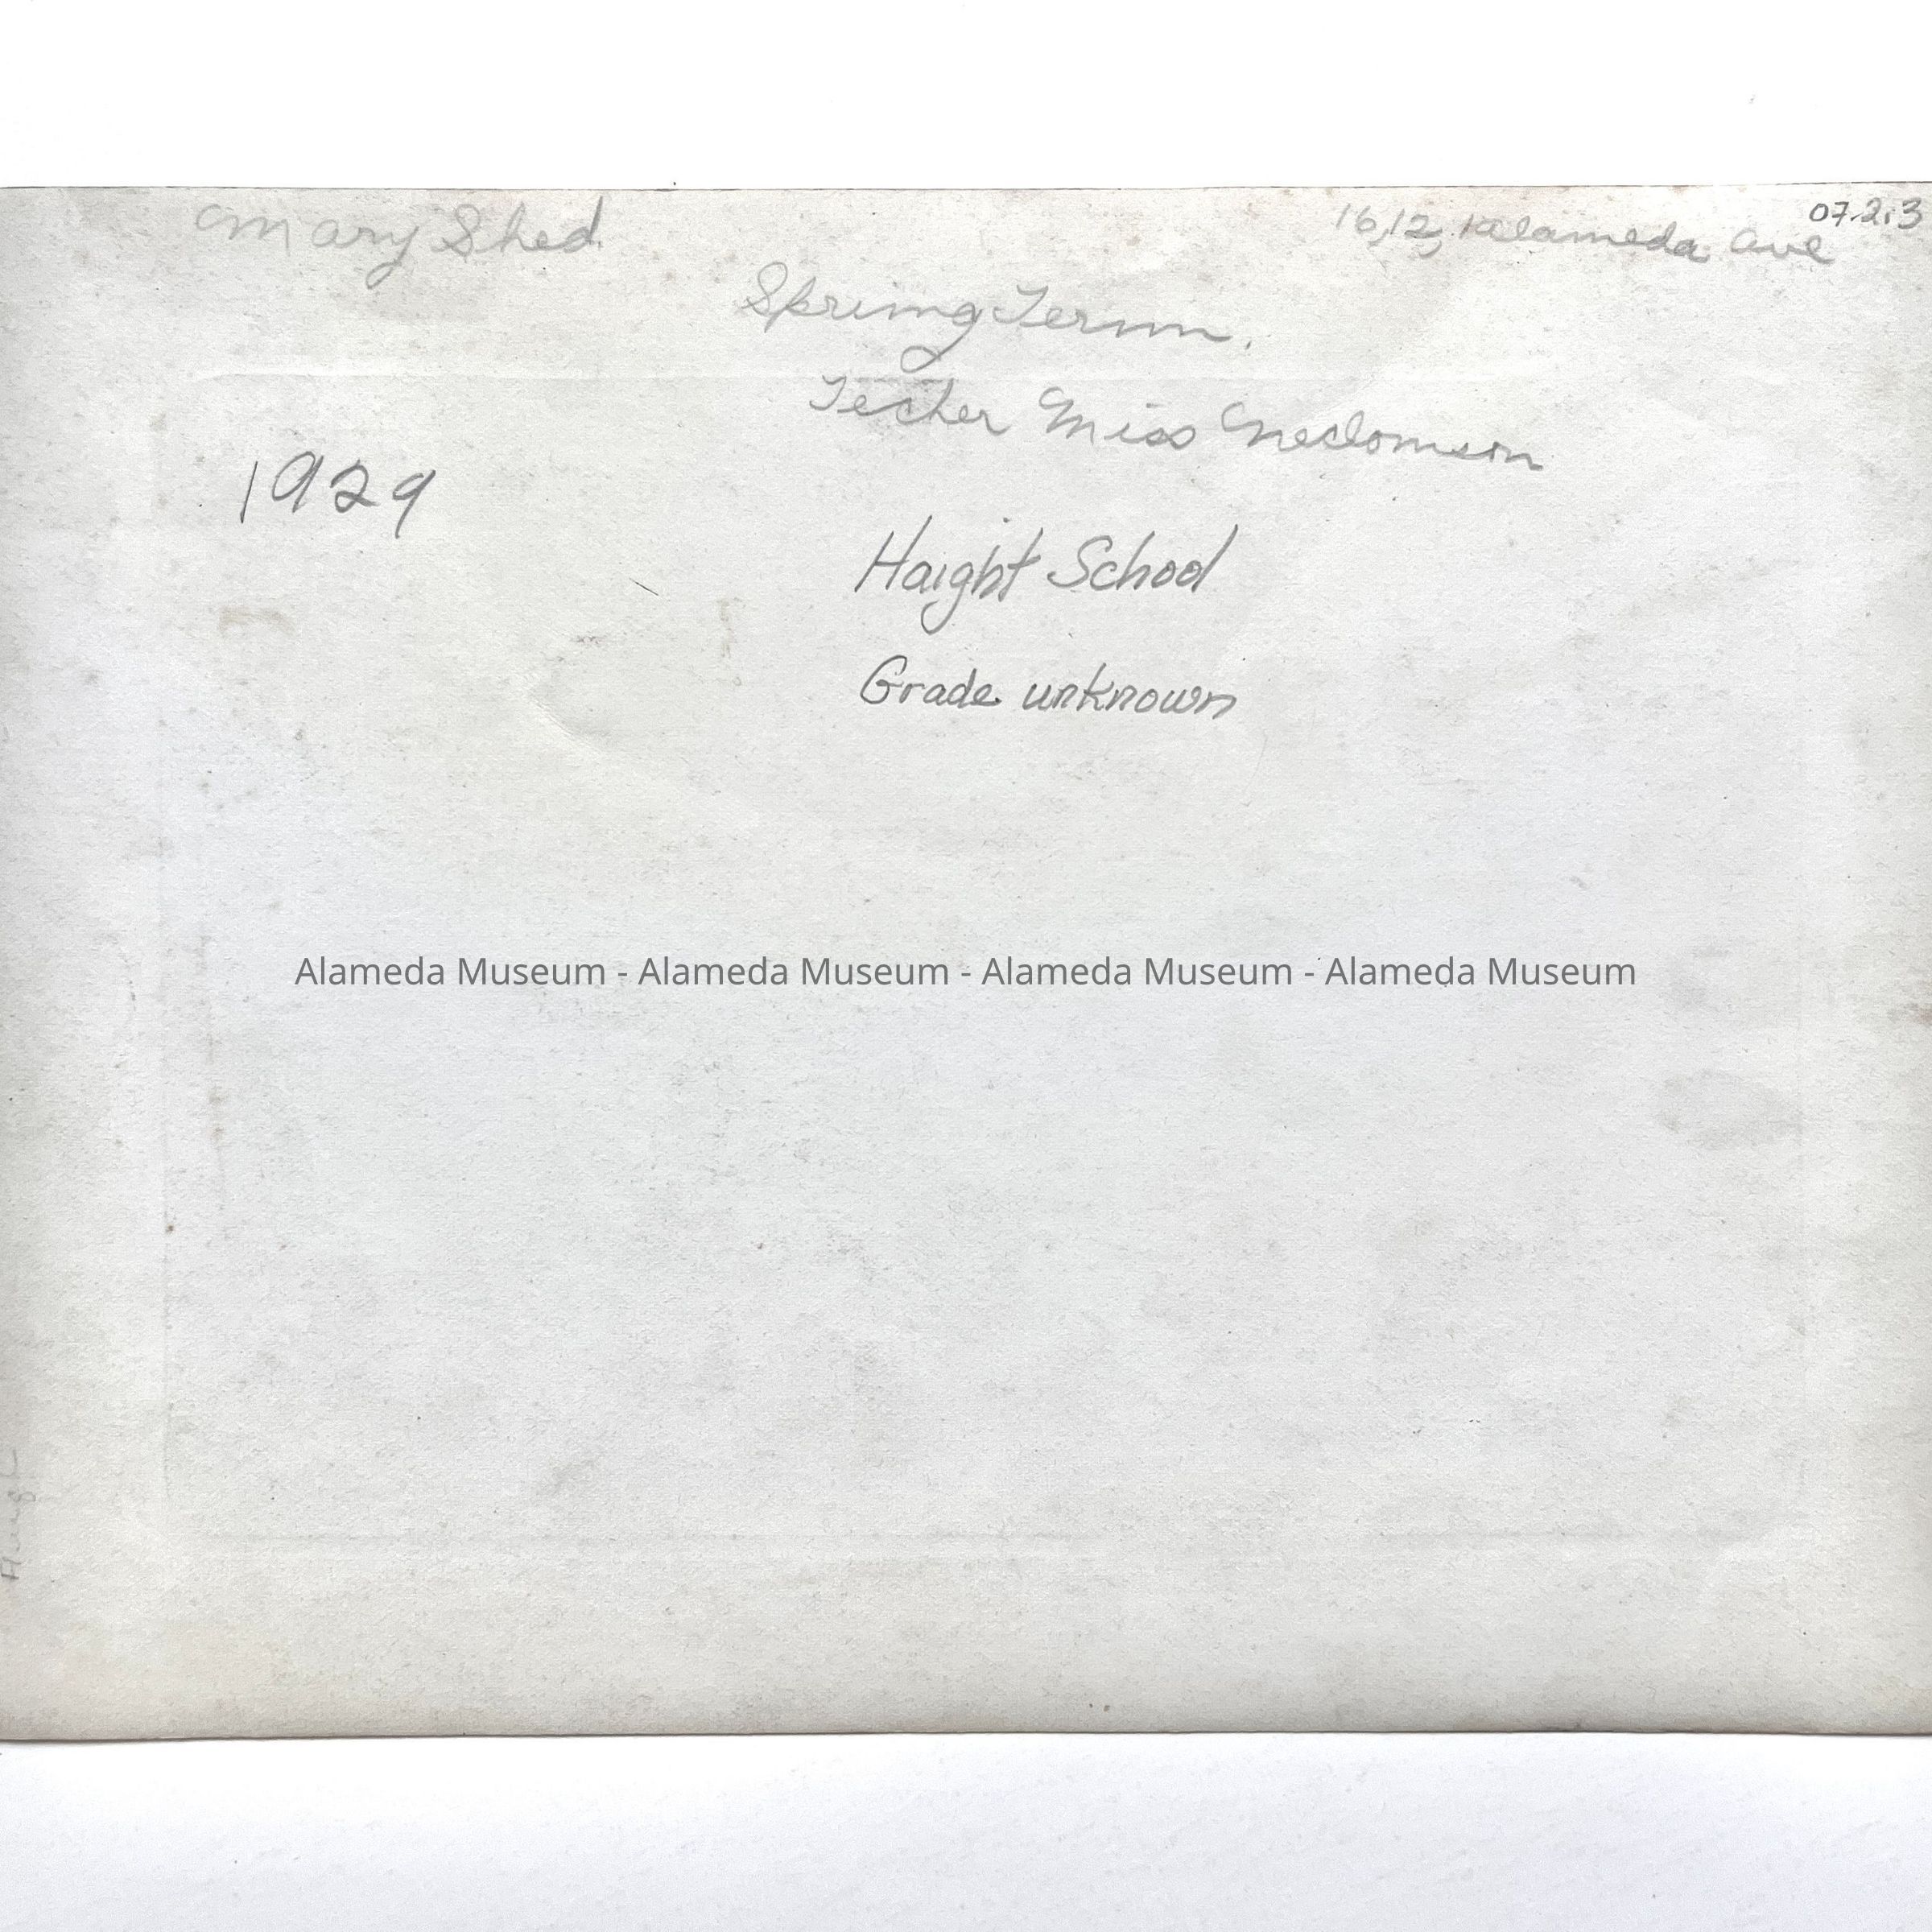 Mary Shed.
16,12, Alameda Ave
07.2.3
Spring Term.
Techer Miss
1929
Haight School
Grade unknown
Alameda Museum - Alameda Museum - Alameda Museum - Alameda Museum